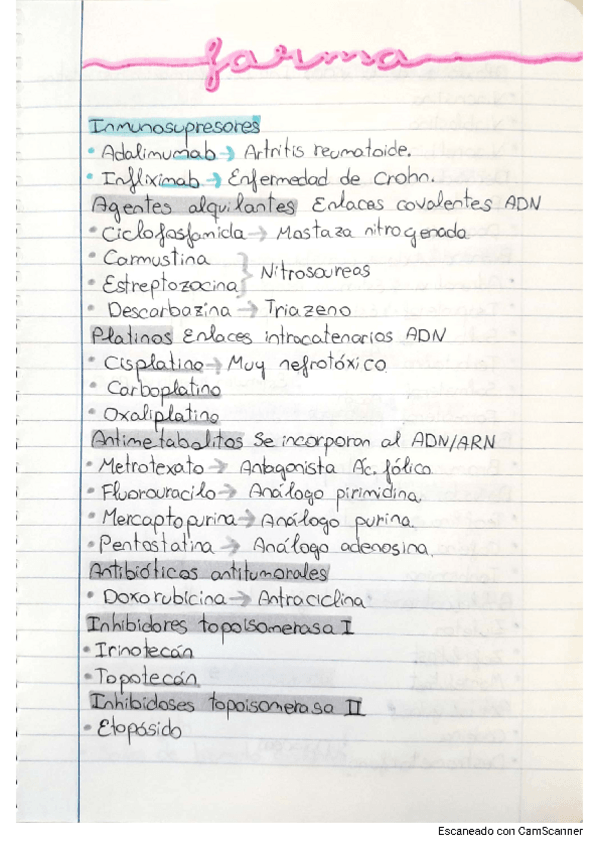 farma
Inmunosupresores
• Adalimumab → Artritis reumatoide.
• Infliximab → Enfermedad de Crohn.
Agentes alquilantes Enlaces covalentes ADN
• Ciclofosfamida → Mostaza nitrogenada
• Carmustina
• Estreptozocina } Nitrosoureas
• Descarbazina → Triazeno
Platinos Enlaces intracatenarios ADN
• Cisplatino → Muy nefrotóxico
• Carboplatino
• Oxaliplatino
Antimetabolitos Se incorporan al ADN/ARN
• Metrotexato → Antagonista Ác. fólico
• Fluorouracilo → Análogo pirimidina.
• Mercaptopurina → Análogo purina.
• Pentostatina → Análogo adenosina.
Antibióticos antitumorales
• Doxorubicina → Antraciclina
Inhibidores topoisomerasa I
• Irinotecán
• Topotecán
Inhibidoses topoisomerasa II
• Etopósido
Escaneado con CamScanner